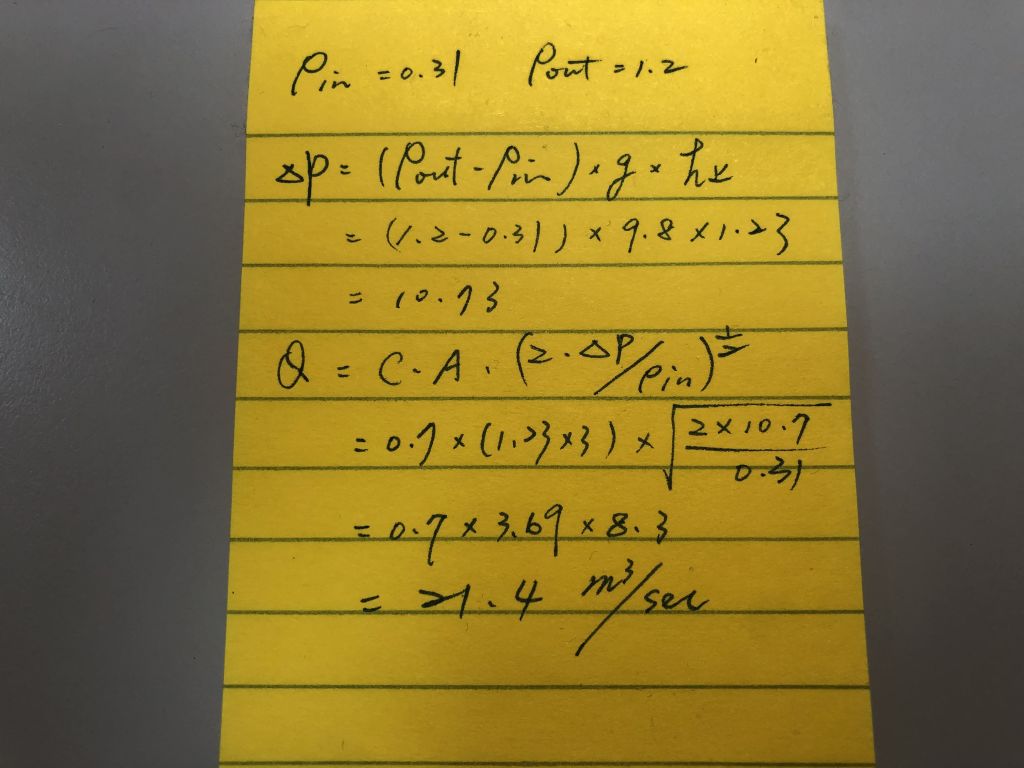 ρin = 0.31 ρout = 1.2
ΔP = (ρout - ρin) × g × h
= (1.2 - 0.31) × 9.8 × 1.23
= 10.73
Q = C · A · (2 · ΔP / ρin)^½
= 0.7 × (1.23 × 3) × √(2 × 10.7 / 0.31)
= 0.7 × 3.69 × 8.3
= 21.4 m³/sec